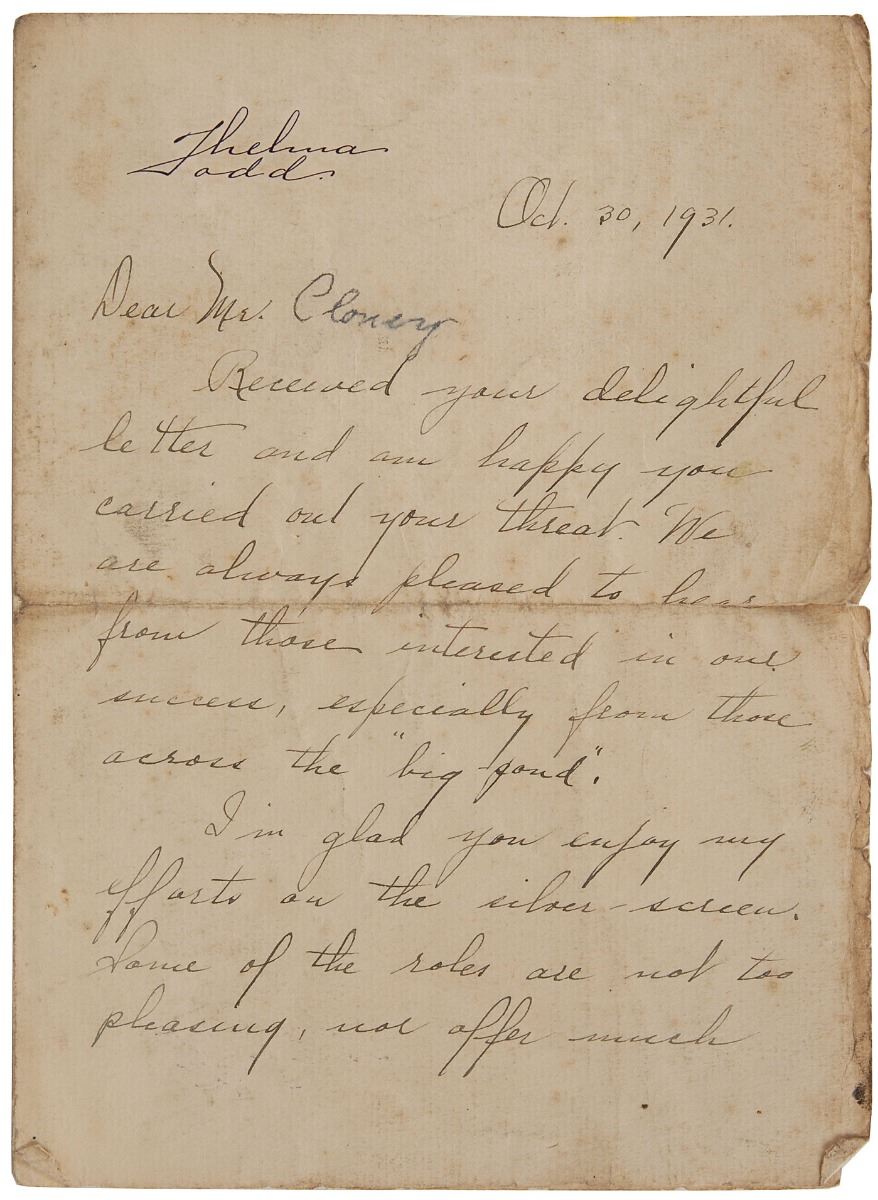 Thelma
Todd.
Oct. 30, 1931.
Dear Mr. Cloney
Received your delightful
letter and am happy you
carried out your threat. We
are always pleased to hear
from those interested in our
success, especially from those
across the "big pond".
I'm glad you enjoy my
efforts on the silver-screen.
Some of the roles are not too
pleasing, nor offer much